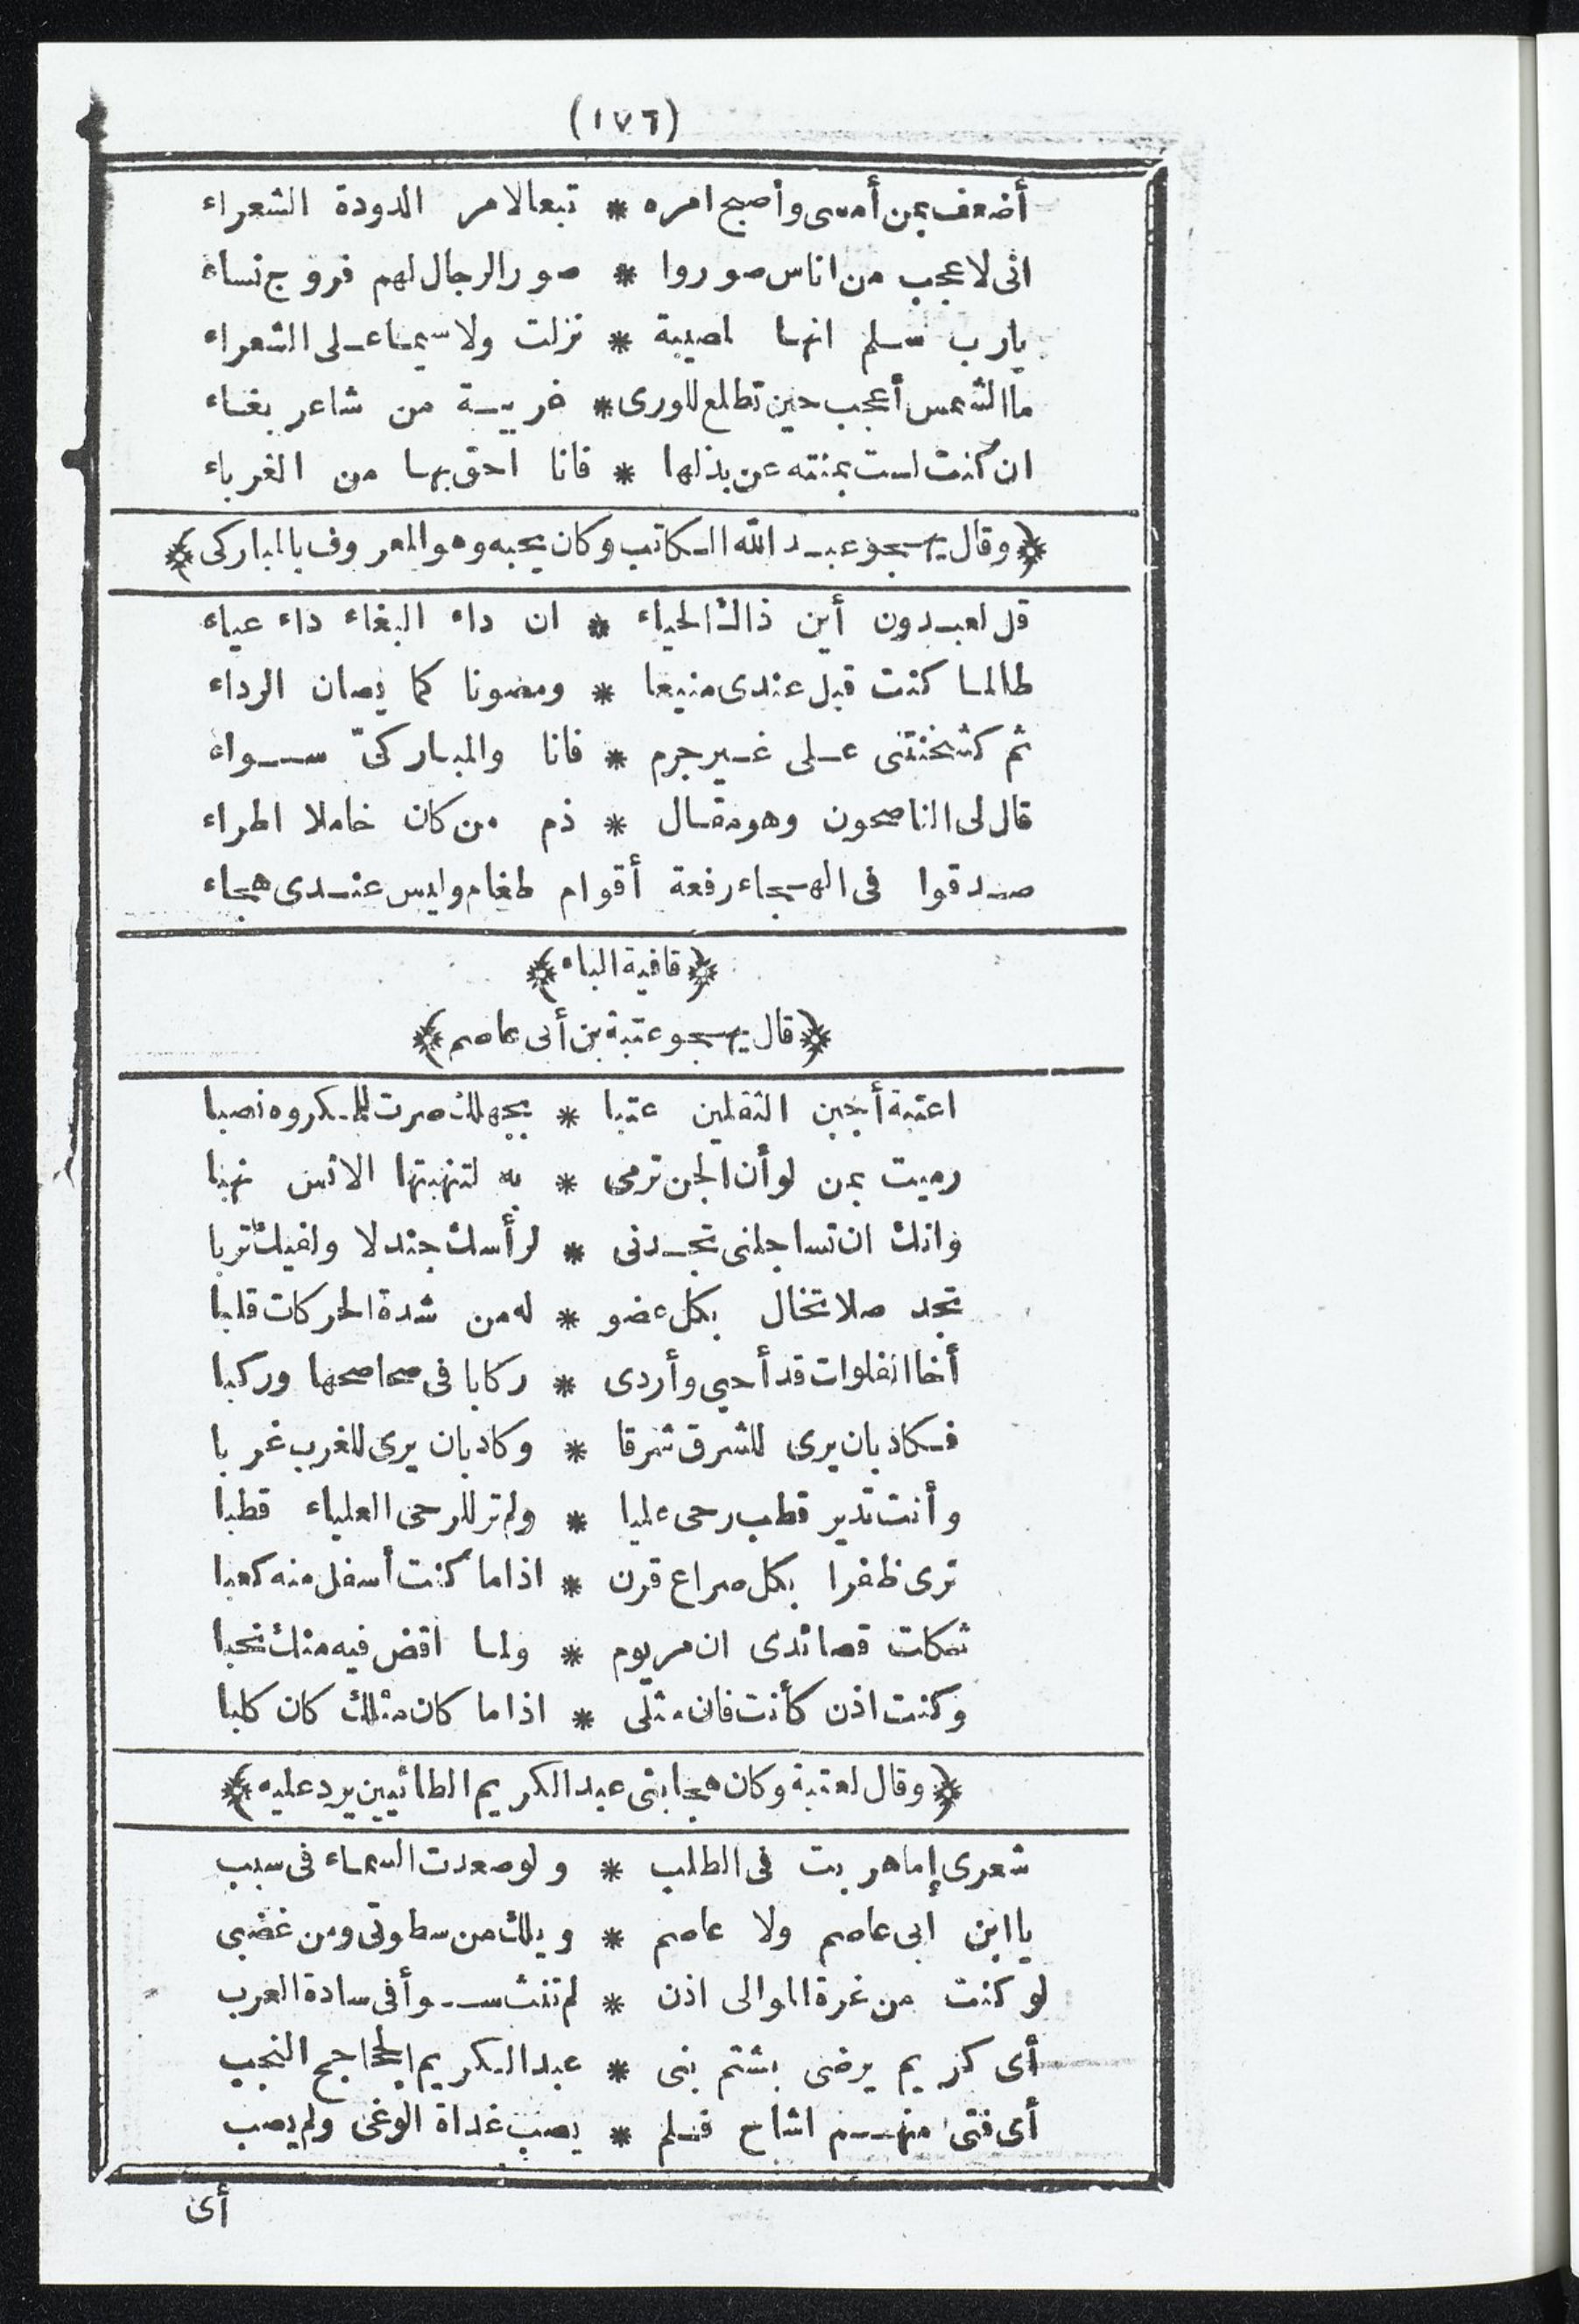 (١٧٦)
أضعف بمن أمسى وأصبح امره * تبعا لامر الدودة الشعراء
انى لاعجب من اناس صوروا * صور الرجال لهم فروج نساء
يارب سلم انها لمصيبة * نزلت ولا سيما على الشعراء
ما الشمس أعجب حين تطلع للورى * غريبة من شاعر بغاء
ان كنت لست بمنته عن بذلها * فانا احق بها من الغرباء
﴿وقال يهجو عبد الله الكاتب وكان يحبه وهو المعروف بالمباركى﴾
قل لعبدون أين ذاك الحياء * ان داء البغاء داء عياء
طالما كنت قبل عندى منيعا * ومصونا كما يصان الرداء
ثم كشخنتنى على غير جرم * فانا والمباركىّ سواء
قال لى الناصحون وهو مقال * ذم من كان خاملا اطراء
صدقوا فى الهجاء رفعة أقوام طغام وليس عندى هجاء
﴿قافية الباء﴾
﴿قال يهجو عتبة بن أبى عاصم﴾
اعتبة أجبن الثقلين عتبا * بجهلك صرت للمكروه نصبا
رميت بمن لو أن الجن ترمى * به لتنهبتها الانس نهبا
وانك ان تساجلنى تجدنى * لرأسك جندلا ولفيك تربا
تجد صلا تخال بكل عضو * له من شدة الحركات قلبا
أخا الفلوات قد أحيى وأردى * ركابا فى صحاصحها وركبا
فكاد بان يرى للشرق شرقا * وكاد بان يرى للغرب غربا
وأنت تدير قطب رحى عليا * ولم تر للرحى العلياء قطبا
ترى ظفرا بكل صراع قرن * اذا ما كنت أسفل منه كعبا
ثكلت قصائدى ان مر يوم * ولما اقض فيه منك نحبا
وكنت اذن كأنت فان مثلى * اذا ما كان مثلك كان كلبا
﴿وقال لعتبة وكان هجا بنى عبد الكريم الطائيين يرد عليه﴾
شعرى إما هربت فى الطلب * ولو صعدت السماء فى سبب
يا ابن ابى عاصم ولا عاصم * ويلك من سطوتى ومن غضبى
لو كنت من غرة الموالى اذن * لم تنث سوأ فى سادة العرب
أى كريم يرضى بشتم بنى * عبد الكريم الجحاجح النجب
أى فتى منهم اشاح فلم * يصب غداة الوغى ولم يصب
أى